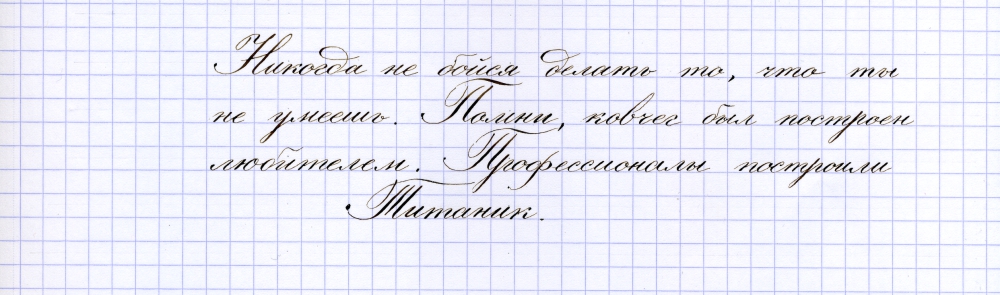 Никогда не бойся делать то, что ты
не умеешь. Помни, ковчег был построен
любителем. Профессионалы построили
Титаник.